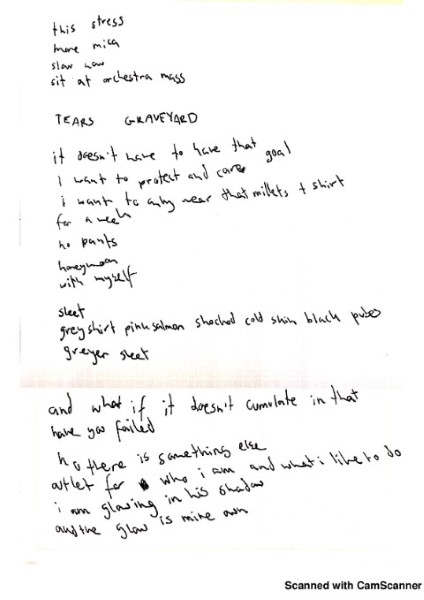 this stress
more mica
slow now
sit at orchestra mass
TEARS GRAVEYARD
it doesn't have to have that goal
I want to protect and care
i want to only wear that millets t shirt
for a week
no pants
honeymoon
with myself
sleet
grey shirt pink salmon shocked cold skin black pubes
greyer sleet
and what if it doesn't cumulate in that
have you failed
no there is something else
outlet for who i am and what i like to do
i am glowing in his shadow
and the glow is mine own
Scanned with CamScanner